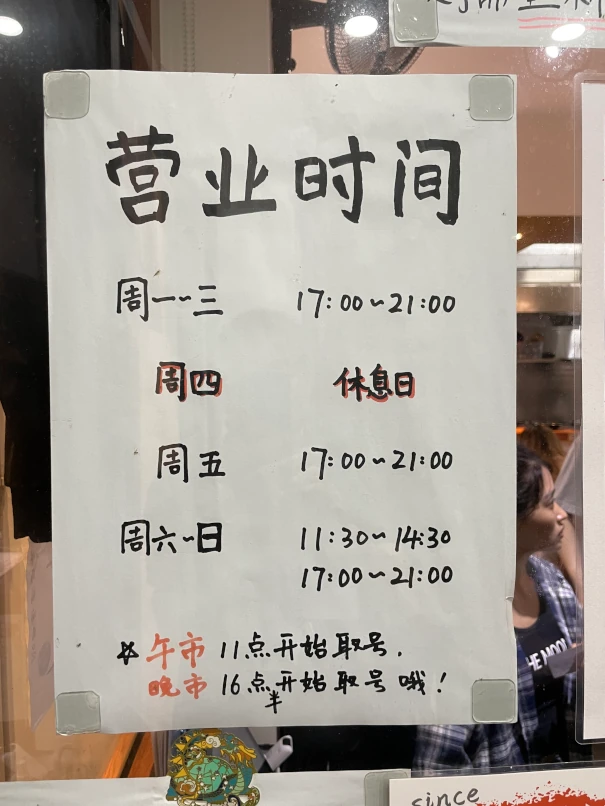 营业时间
周一~三 17:00~21:00
周四 休息日
周五 17:00~21:00
周六~日 11:30~14:30
17:00~21:00
☆午市 11点开始取号.
晚市 16点半开始取号哦!
HE MOO
since